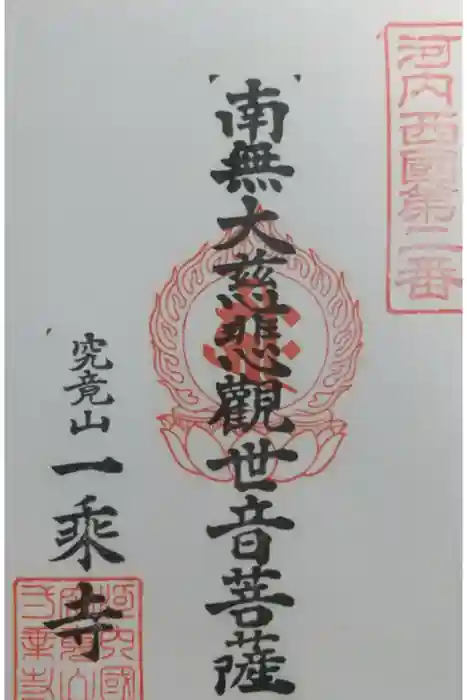 河内西國第二番
南無大慈悲觀世音菩薩
究竟山
一乘寺
河内國
究竟山
一乗寺